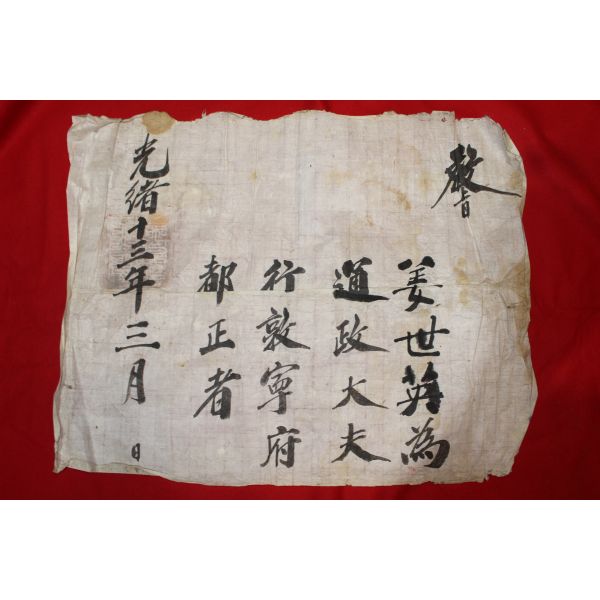 敎旨
姜世 為
通政大夫
行敦寧府
都正者
光緖十三年三月 日